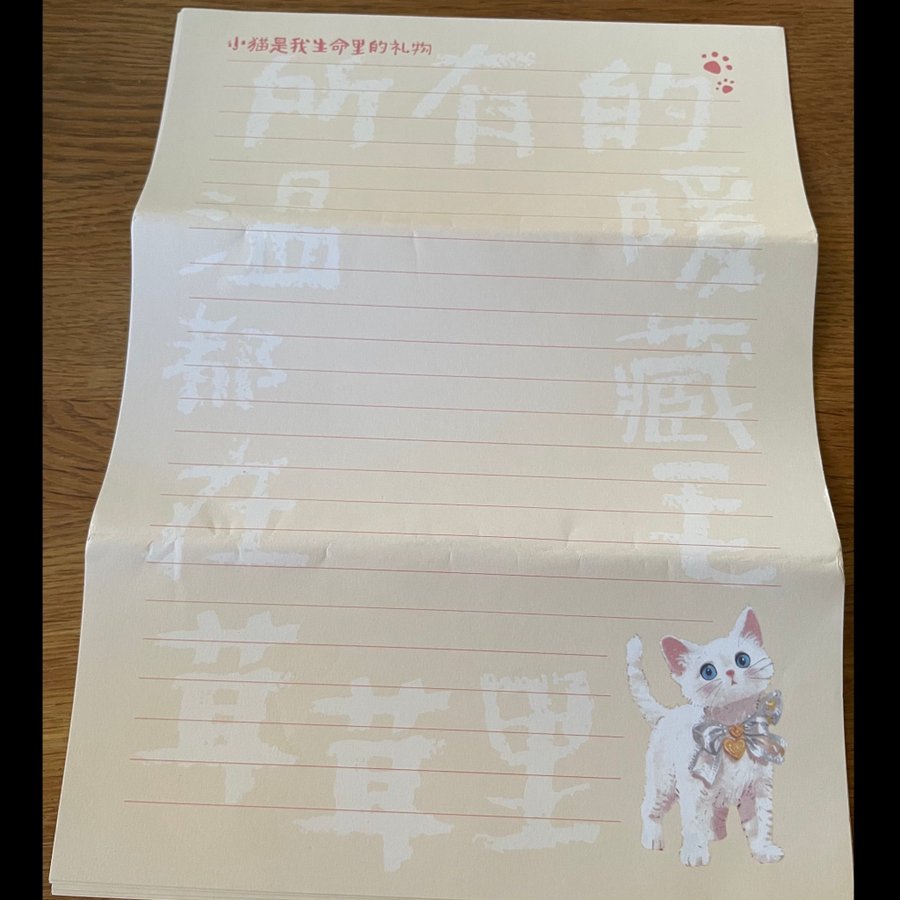 小猫是我生命里的礼物
所有的
温暖
都藏
在毛
茸茸里